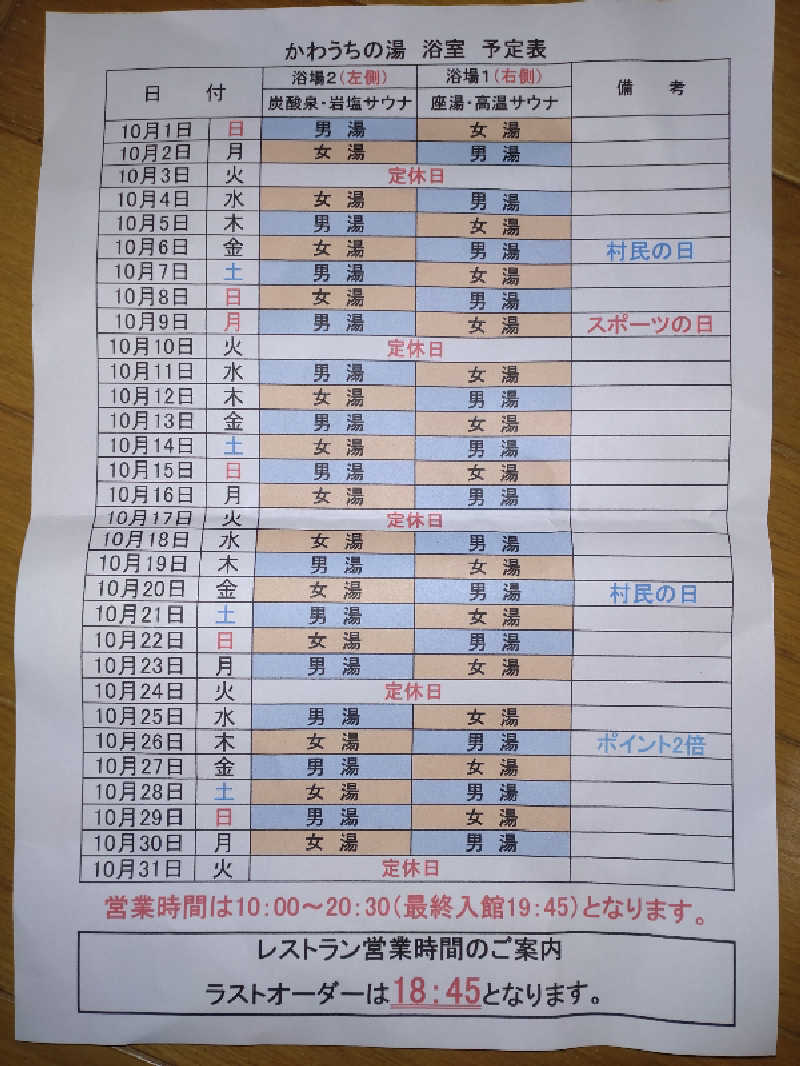 かわうちの湯 浴室 予定表
日 付 浴場2(左側) 浴場1(右側) 備 考
炭酸泉・岩塩サウナ 座湯・高温サウナ
10月1日 日 男 湯 女 湯
10月2日 月 女 湯 男 湯
10月3日 火 定休日
10月4日 水 女 湯 男 湯
10月5日 木 男 湯 女 湯
10月6日 金 女 湯 男 湯 村民の日
10月7日 土 男 湯 女 湯
10月8日 日 女 湯 男 湯
10月9日 月 男 湯 女 湯 スポーツの日
10月10日 火 定休日
10月11日 水 男 湯 女 湯
10月12日 木 女 湯 男 湯
10月13日 金 男 湯 女 湯
10月14日 土 女 湯 男 湯
10月15日 日 男 湯 女 湯
10月16日 月 女 湯 男 湯
10月17日 火 定休日
10月18日 水 女 湯 男 湯
10月19日 木 男 湯 女 湯
10月20日 金 女 湯 男 湯 村民の日
10月21日 土 男 湯 女 湯
10月22日 日 女 湯 男 湯
10月23日 月 男 湯 女 湯
10月24日 火 定休日
10月25日 水 男 湯 女 湯
10月26日 木 女 湯 男 湯 ポイント2倍
10月27日 金 男 湯 女 湯
10月28日 土 女 湯 男 湯
10月29日 日 男 湯 女 湯
10月30日 月 女 湯 男 湯
10月31日 火 定休日
営業時間は10:00～20:30(最終入館19:45)となります。
レストラン営業時間のご案内
ラストオーダーは18:45となります。